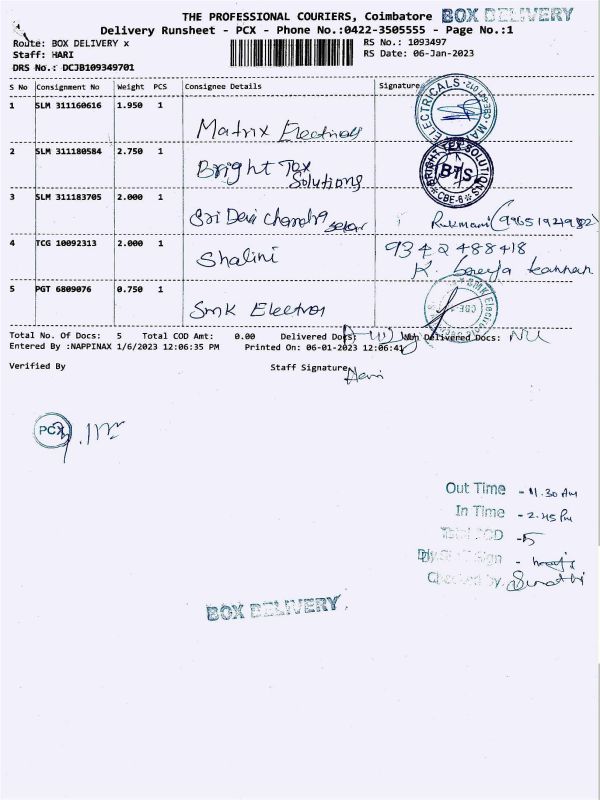 THE PROFESSIONAL COURIERS, Coimbatore BOX DELIVERY
Delivery Runsheet - PCX - Phone No.:0422-3505555 - Page No.:1
Route: BOX DELIVERY x RS No.: 1093497
Staff: HARI RS Date: 06-Jan-2023
DRS No.: DCJB109349701
S No Consignment No Weight PCS Consignee Details Signature
1 SLM 311160616 1.950 1 Matrix Electricals
MATRIX ELECTRICALS
2 SLM 311180584 2.750 1 Bright Tex
Solutions
BRIGHT TEX SOLUTIONS
BTS
CBE-6
3 SLM 311183705 2.000 1 Sri Devi Chandra Sekar Rukmani (9965192982)
4 TCG 10092313 2.000 1 Shalini 9342488418
K. kannan
5 PGT 6809076 0.750 1 SMK Electro
SMK Electro
Total No. Of Docs: 5 Total COD Amt: 0.00 Delivered Docs: Non Delivered Docs: NIL
Entered By :NAPPINAX 1/6/2023 12:06:35 PM Printed On: 06-01-2023 12:06:41
Verified By Staff Signature
Hari
PCX
Out Time - 11.30 Am
In Time - 2.45 Pm
Total POD - 5
Dly.Staff Sign
Checked by.
BOX DELIVERY